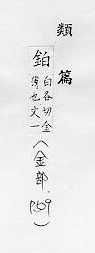 類篇
鉑
白各切金
薄也文一
(金部. P.69)